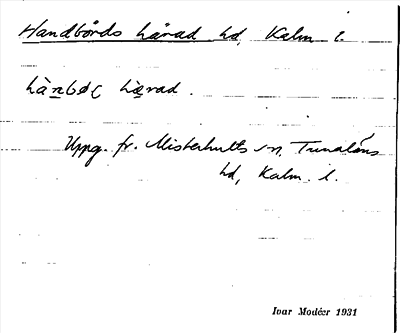 Handbörds härad hd, Kalm l.
hànbøḷ hærad.
Uppg. fr. Misterhults sn, Tunaläns
hd, Kalm. l.
Ivar Modéer 1931